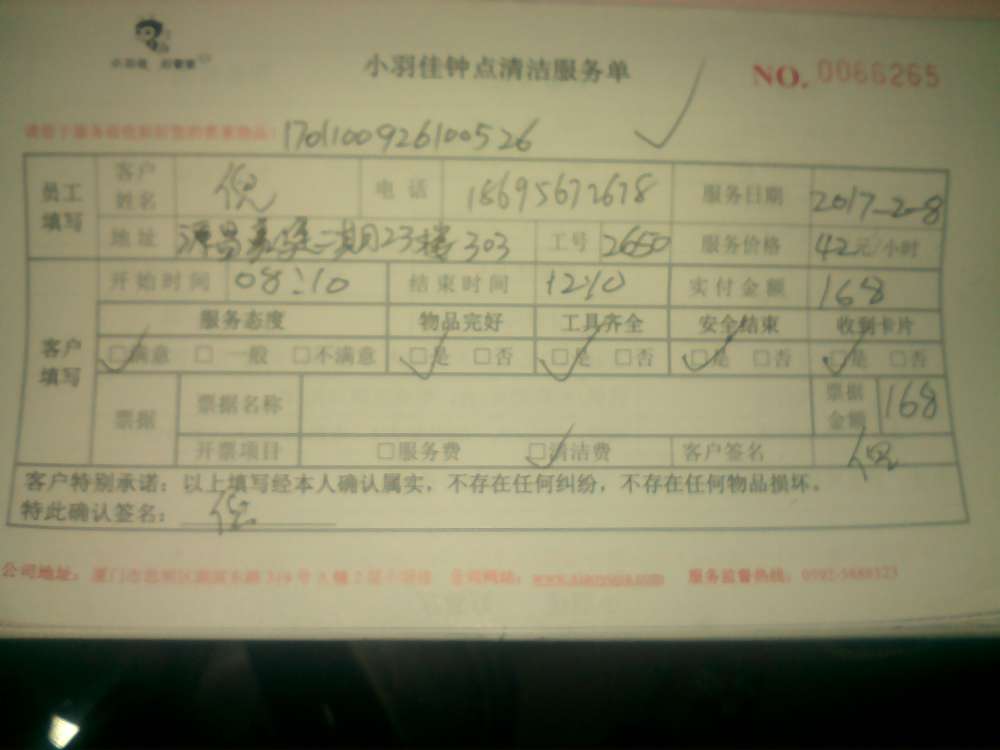 小羽佳钟点清洁服务单
NO. 0066265
1701100926100526
员工填写 客户姓名 倪 电话 18695672678 服务日期 2017-2-8
地址 二期23楼303 工号 2650 服务价格 42元/小时
客户填写 开始时间 08:10 结束时间 1210 实付金额 168
服务态度 物品完好 工具齐全 安全结束 收到卡片
☑满意 □一般 □不满意 ☑是 □否 ☑是 □否 ☑是 □否 ☑是 □否
票据 票据名称 票据金额 168
开票项目 □服务费 ☑清洁费 客户签名 倪
客户特别承诺:以上填写经本人确认属实,不存在任何纠纷,不存在任何物品损坏。
特此确认签名: 倪
公司地址: 厦门市 公司网站: 服务监督热线: